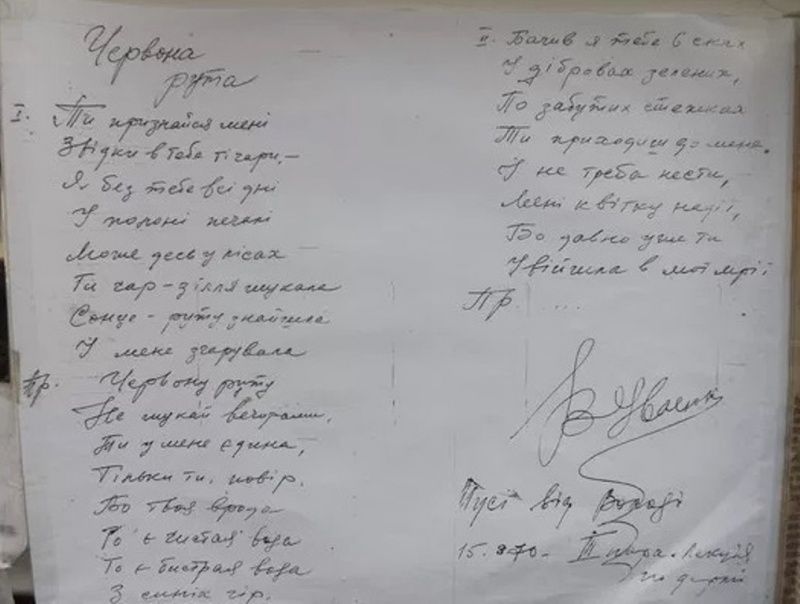 Червона
рута
I. Ти признайся мені
Звідки в тебе ті чари, –
Я без тебе всі дні
У полоні печалі
Може десь у лісах
Ти чар-зілля шукала
Сонце-руту знайшла
І мене зчарувала
Пр. Червону руту
Не шукай вечорами,
Ти у мене єдина,
Тільки ти, повір.
Бо твоя врода
То є чистая вода
То є бистрая вода
З синіх гір.
II. Бачив я тебе в снах
У дібровах зелених,
По забутих стежках
Ти приходиш до мене.
І не треба нести,
Мені квітку надії,
Бо давно уже ти
Увійшла в мої мрії
Пр. ...
Пусі від Володі
15. 970- III пара. Лекція